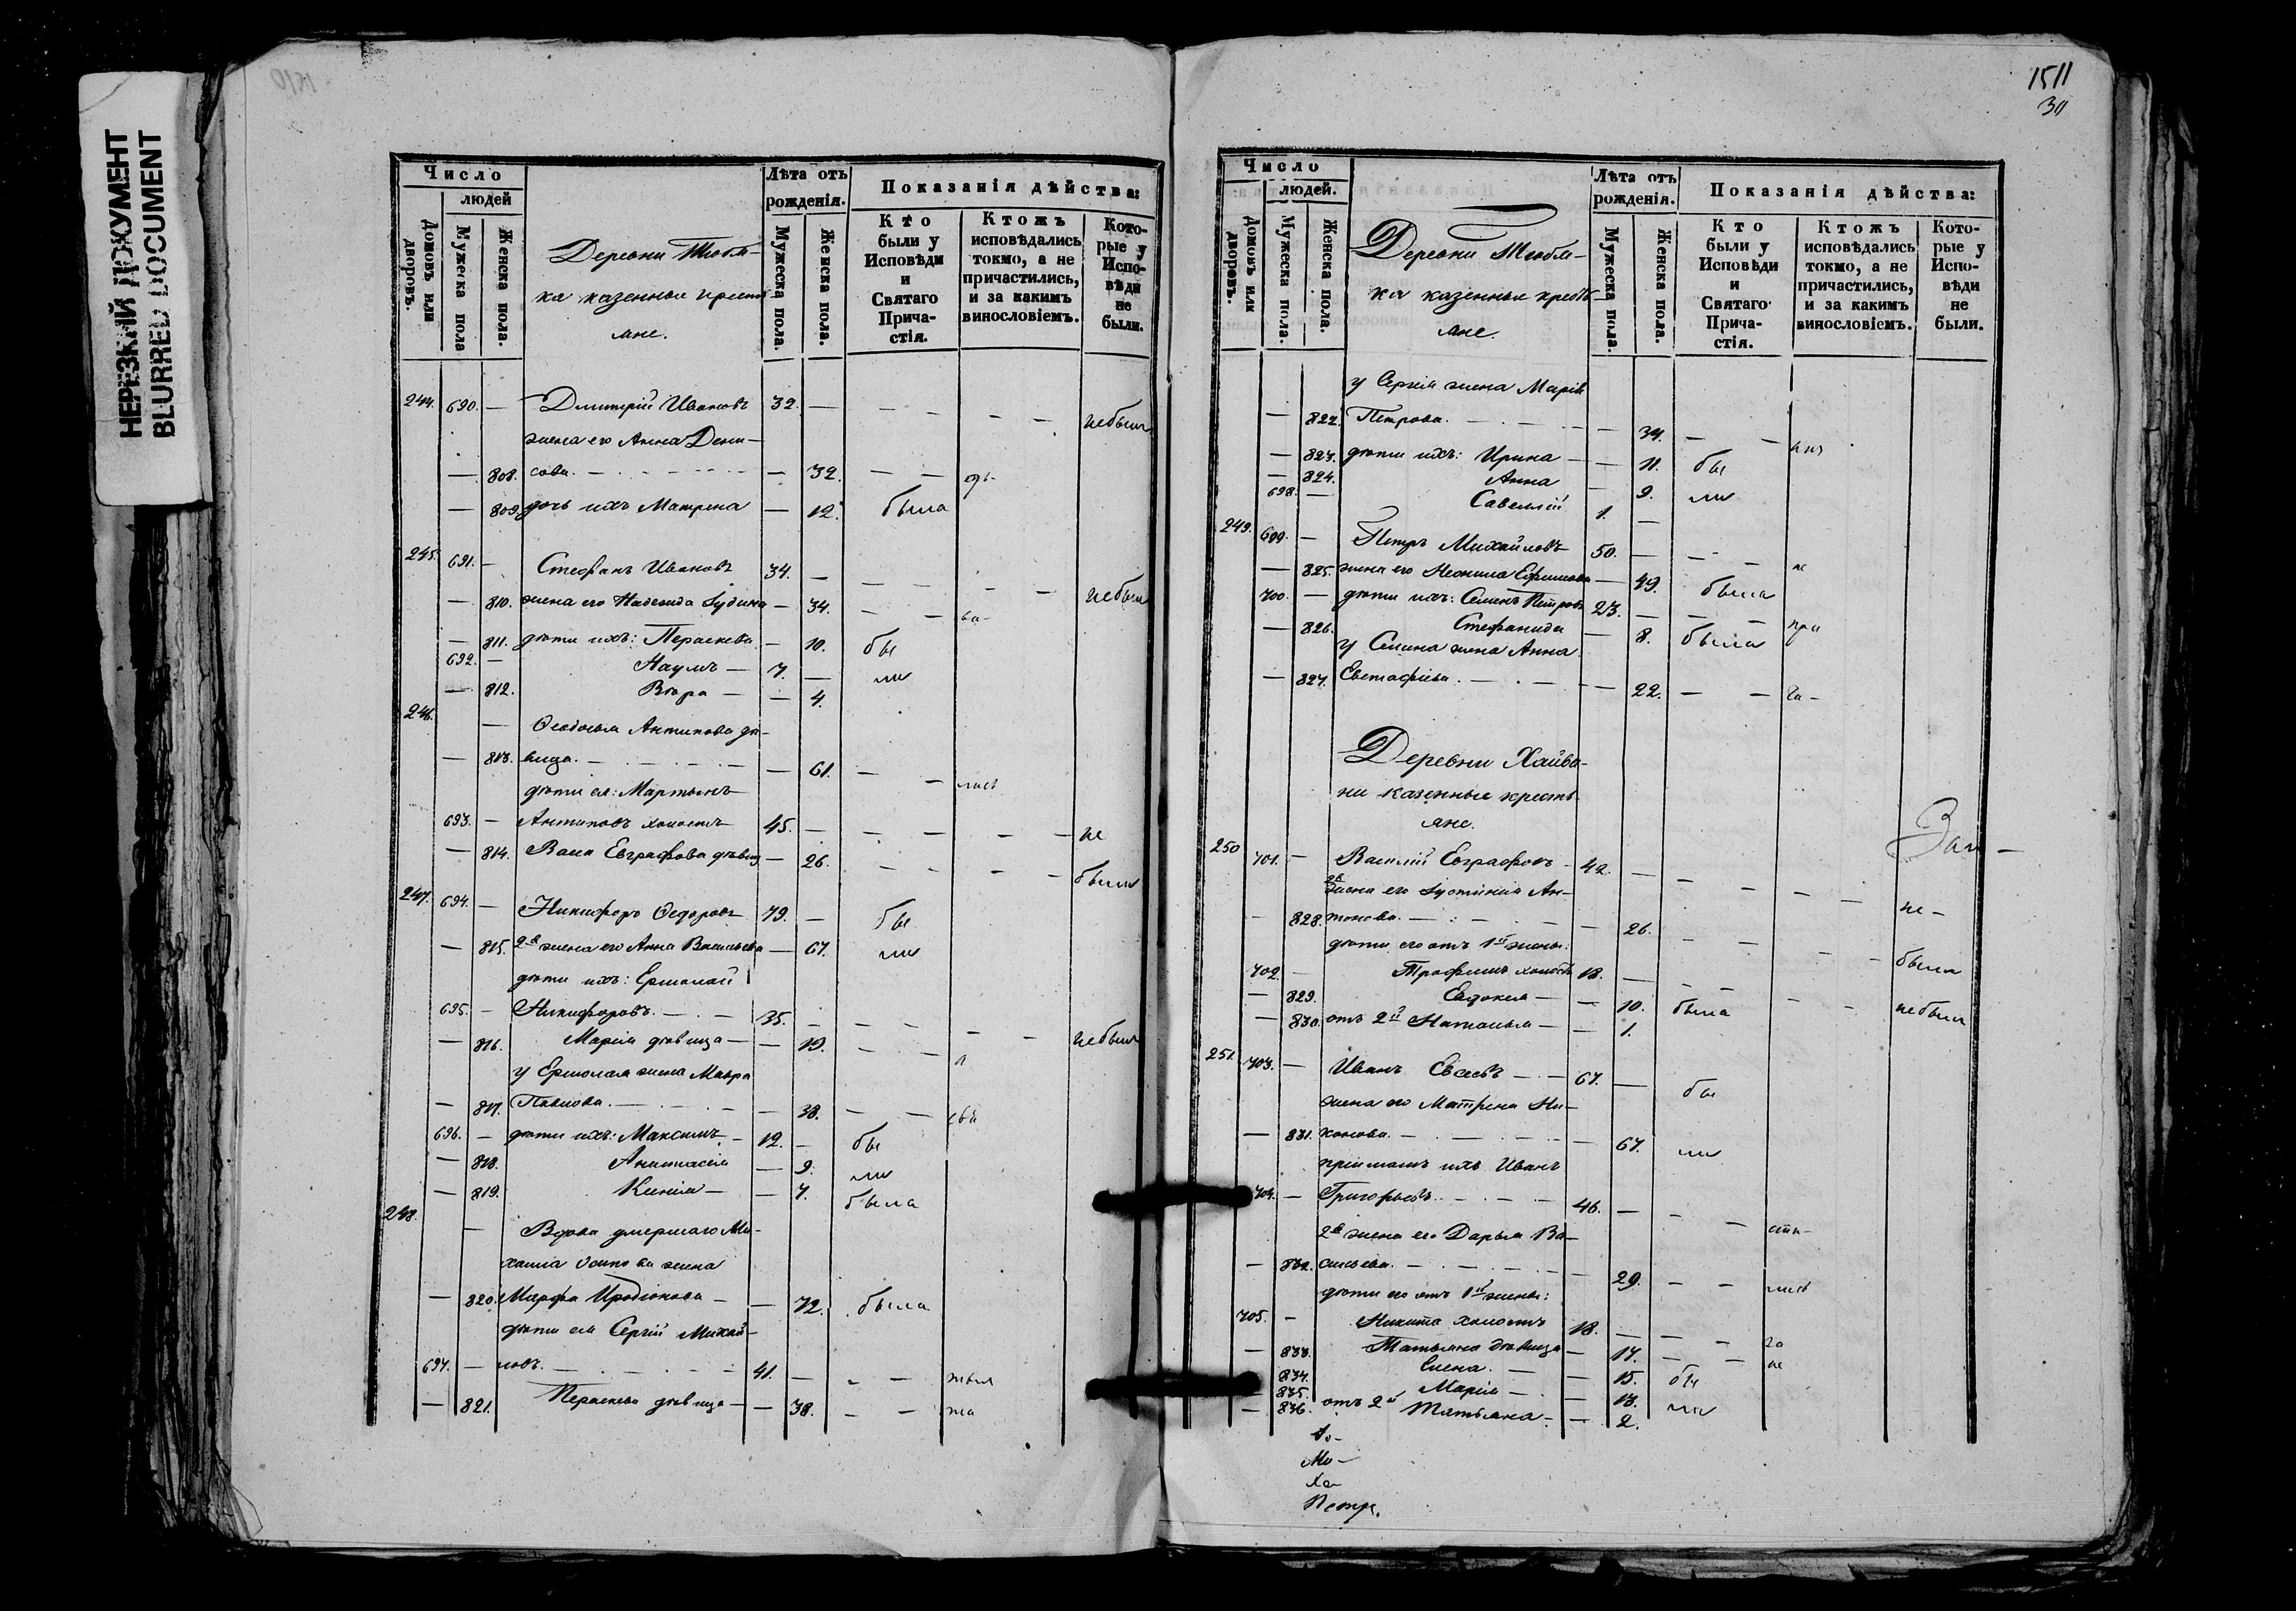 НЕРЕЗКИЙ ДОКУМЕНТ
BLURRED DOCUMENT
Число
людей
Домовъ или дворовъ.
Мужеска пола
Женска пола.
Деревни Тюбя-
ка казенные кресть
яне.
Лѣта отъ
рожденія.
Мужеска пола.
Женска пола.
Показанія дѣйства:
Кто
были у
Исповѣди
и
Святаго
Прича-
стія.
Ктожъ
исповѣдались
токмо, а не
причастились,
и за какимъ
винословіемъ.
Кото-
рые у
Испо-
вѣди
не
были.
244. 690. — Дмитрій Ивановъ 32. — небыли
жена его Анна Дени-
— 808. сова. — 32.
— 809. дочь ихъ Матрена — 12. была
245. 691. — Стефанъ Ивановъ 34. —
— 810. жена его Надежда Іудина — 34. — небыли
— 811. дѣти ихъ: Параскева — 10. бы
692. — Наумъ — 7. — ли
— 812. Вѣра — — 4.
246. — Ѳеодосья Антипова дѣ-
— 813. вица. — — 61. —
дѣти ея: Мартынъ
693. — Антиповъ холостъ 45. — не
— 814. Васа Евграфова дѣвица — 26. — были
247. 694. — Никифоръ Ѳедоровъ 79. — бы
— 815. 2я жена его Анна Васильева — 67. ли
дѣти ихъ: Ермолай
695. — Никифоровъ. — 35. —
— 816. Марія дѣвица — — 19. — небыли
у Ермолая жена Мавра
— 817. Павлова. — — 38. —
696. — дѣти ихъ: Максимъ — 12. — бы
— 818. Анастасія — 9. ли
— 819. Ксенія — — 7. была
248. — Вдова умершаго Ми-
хаила Осипова жена
— 820. Марѳа Иродіонова — — 72. была
дѣти ея Сергій Михай-
697. — ловъ. — 41. —
— 821. Параскева дѣвица — — 38. —
1511
311
Число
людей.
Домовъ или дворовъ.
Мужеска пола.
Женска пола.
Деревни Тюбя-
ка казенные кресть
яне.
Лѣта отъ
рожденія.
Мужеска пола.
Женска пола.
Показанія дѣйства:
Кто
были у
Исповѣди
и
Святаго
Прича-
стія.
Ктожъ
исповѣдались
токмо, а не
причастились,
и за какимъ
винословіемъ.
Кото-
рые у
Испо-
вѣди
не
были.
у Сергія жена Марія
— 822. Петрова. — — 34. —
— 823. дѣти ихъ: Ирина — — 11. бы
— 824. Анна — 9. ли
698. — Савелій 1. —
249. 699. — Петръ Михайловъ 50. — не
— 825. жена его Неонила Ефимова — 49. была
700. — дѣти ихъ: Семенъ Петровъ 23. — при
— 826. Стефанида — 8. была
у Семена жена Анна
— 827. Евстафіева. — — 22. — ча-
Деревни Хайва-
ни казенные кресть
яне.
250 701. — Василій Евграфовъ — 42. —
2я жена его Іустинія Ан-
— 828. тонова. — — 26. — не-
дѣти его отъ 1й жены:
702. — Трофимъ холостъ 18. — были
— 829. Евдокія — — 10. была небыли
— 830. отъ 2й Наталья — — 1.
251. 703. — Иванъ Евсѣевъ — 67. — бы
жена его Матрена Ни-
— 831. конова. — — 67. ли
пріимышъ ихъ Иванъ
704. — Григорьевъ. — 46. — сти-
2я жена его Дарья Ва-
— 832. сильева. — — 29. — лись
дѣти его отъ 1й жены:
705. — Никита холостъ 18. — за
— 833. Татьяна дѣвица — 17. — не
834. Елена. — — 15. бы
835. Марія — — 13.
— 836. отъ 2й Татьяна — — 2. ли
Ми-
ха-
Петр.